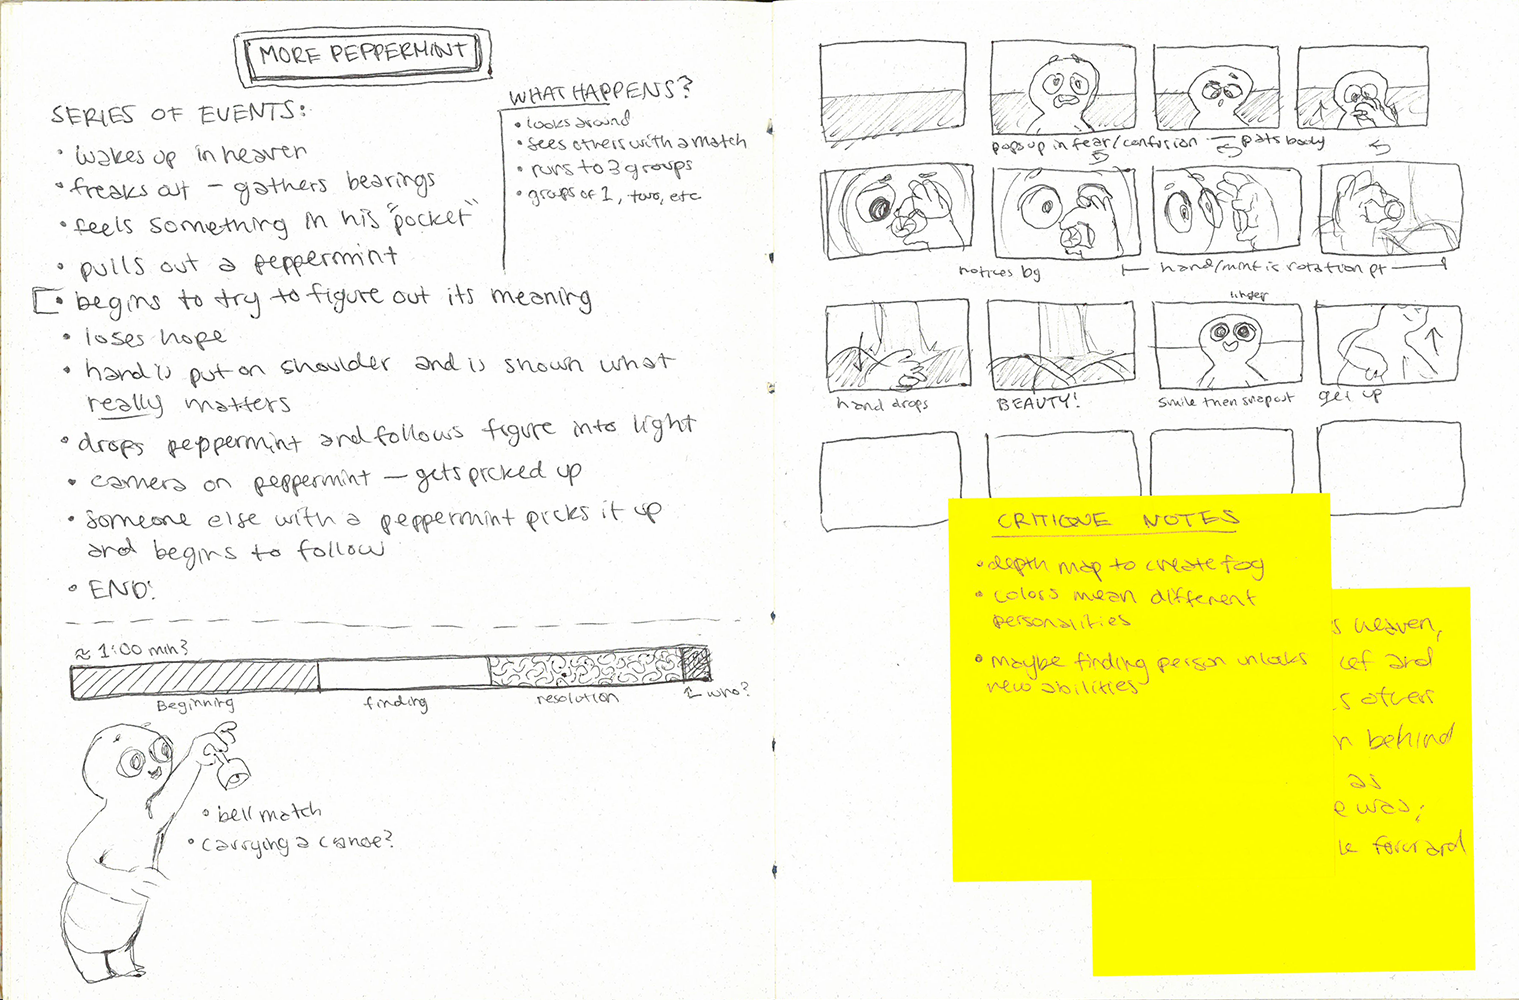 MORE PEPPERMINT
SERIES OF EVENTS:
• wakes up in heaven
• freaks out — gathers bearings
• feels something in his "pocket"
• pulls out a peppermint
• begins to try to figure out its meaning
• loses hope
• hand is put on shoulder and is shown what
really matters
• drops peppermint and follows figure into light
• camera on peppermint — gets picked up
• someone else with a peppermint picks it up
and begins to follow
• END!
WHAT HAPPENS?
• looks around
• sees others with a match
• runs to 3 groups
• groups of 1, two, etc
≈ 1:00 min?
Beginning
finding
resolution
who?
• bell match
• carrying a canoe?
pops up in fear/confusion
pats body
notices bg
hand/mint is rotation pt
linger
hand drops
BEAUTY!
smile then snap out
get up
CRITIQUE NOTES
• depth map to create fog
• colors mean different
personalities
• maybe finding person unlocks
new abilities
s heaven,
ief and
s others
n behind
as
e was;
le forward